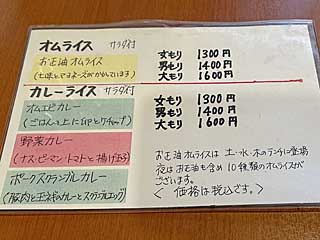 オムライス サラダ付
お正油オムライス
(七味とマヨネーズがかかています)
女もり 1300円
男もり 1400円
大もり 1600円
カレーライス サラダ付
オムエビカレー
(ごはんの上に卵とケチャップ)
野菜カレー
(ナス・ピーマン・トマトと揚げ玉子)
ポークスクランブルカレー
(豚肉と玉ネギのカレーとスクランブルエッグ)
女もり 1300円
男もり 1400円
大もり 1600円
お正油オムライスは 土・水・木のランチに登場
夜はお正油も含め10種類のオムライスが
ございます。
〈 価格は税込です。〉